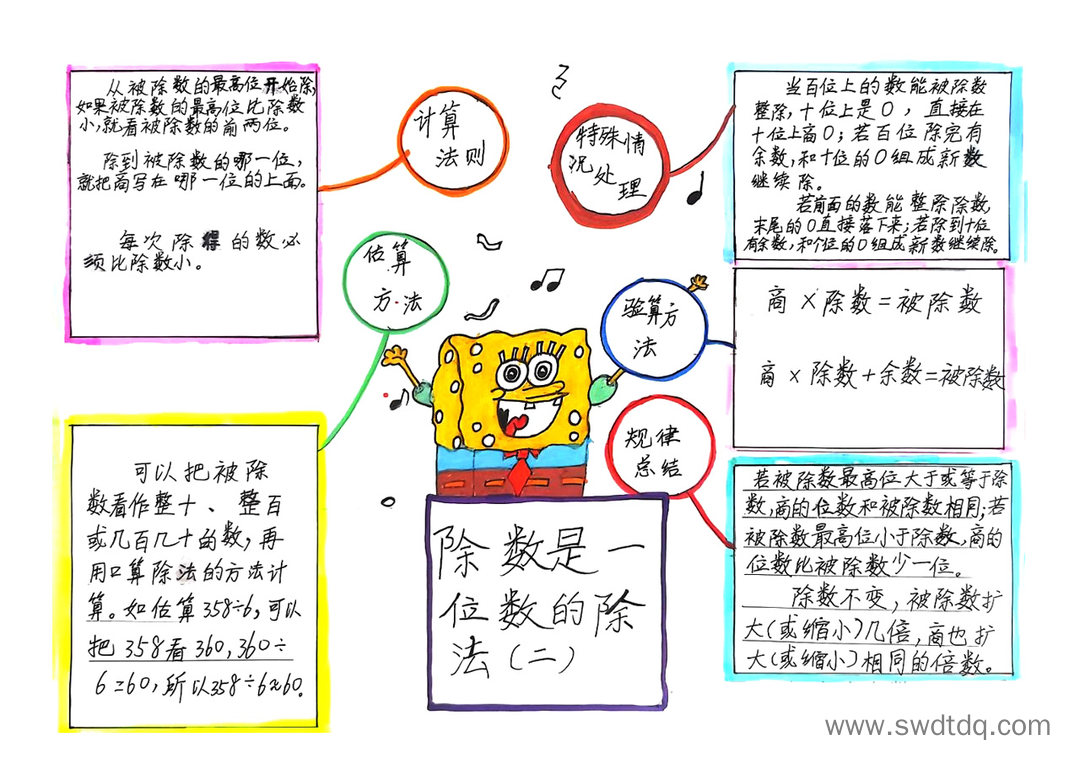 除数是一
位数的除
法(二)
计算
法则
从被除数的最高位开始除,
如果被除数的最高位比除数
小,就看被除数的前两位。
除到被除数的哪一位,
就把商写在哪一位的上面。
每次除得的数必
须比除数小。
估算
方法
可以把被除
数看作整十、整百
或几百几十的数,再
用口算除法的方法计
算。如估算358÷6,可以
把358看360,360÷
6=60,所以358÷6≈60。
特殊情
况处理
当百位上的数能被除数
整除,十位上是0,直接在
十位上商0;若百位除完有
余数,和十位的0组成新数
继续除。
若前面的数能整除除数,
末尾的0直接落下来;若除到十位
有余数,和个位的0组成新数继续除。
验算方
法
商×除数=被除数
商×除数+余数=被除数
规律
总结
若被除数最高位大于或等于除
数,商的位数和被除数相同;若
被除数最高位小于除数,商的
位数比被除数少一位。
除数不变,被除数扩
大(或缩小)几倍,商也扩
大(或缩小)相同的倍数。
www.swdtdq.com